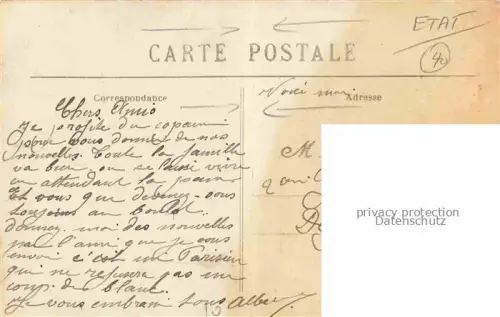 ETAT
40
CARTE POSTALE
Correspondance
Adresse
Voici moi
Chers Amis
Je profite du copain
pour vous donner de nos
nouvelles. Toute la famille
va bien, on se laisse vivre
en attendant la
Et vous que devenez-vous
toujours au boulot.
donnez-moi des nouvelles
par l'ami que je vous
envoi c'est un Parisien
qui ne refusera pas un
coup de blanc.
Je vous embrasse tous Albert
M.
privacy protection
Datenschutz